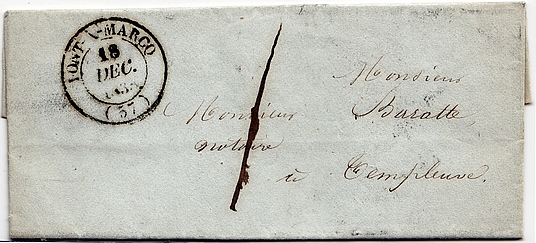 PONT-A-MARCQ
18
DEC.
(57)
Monsieur
Monsieur Baratte
notaire
à Templeuve.
1